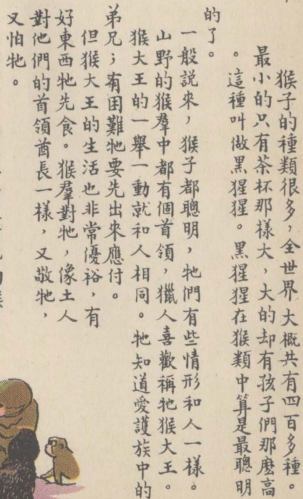 猴子的種類很多，全世界大概共有四百多種。
最小的只有茶杯那樣大，大的却有孩子們那麽高
。這種叫做黑猩猩。黑猩猩在猴類中算是最聰明
的了。
一般說來，猴子都聰明，牠們有些情形和人一樣。
山野的猴羣中都有個首領，獵人喜歡稱牠猴大王。
猴大王的一舉一動就和人相同。牠知道愛護族中的
弟兄；有困難牠要先出來應付。
但猴大王的生活也非常優裕，有
好東西牠先食。猴羣對牠，像土人
對他們的首領酋長一樣，又敬牠，
又怕牠。